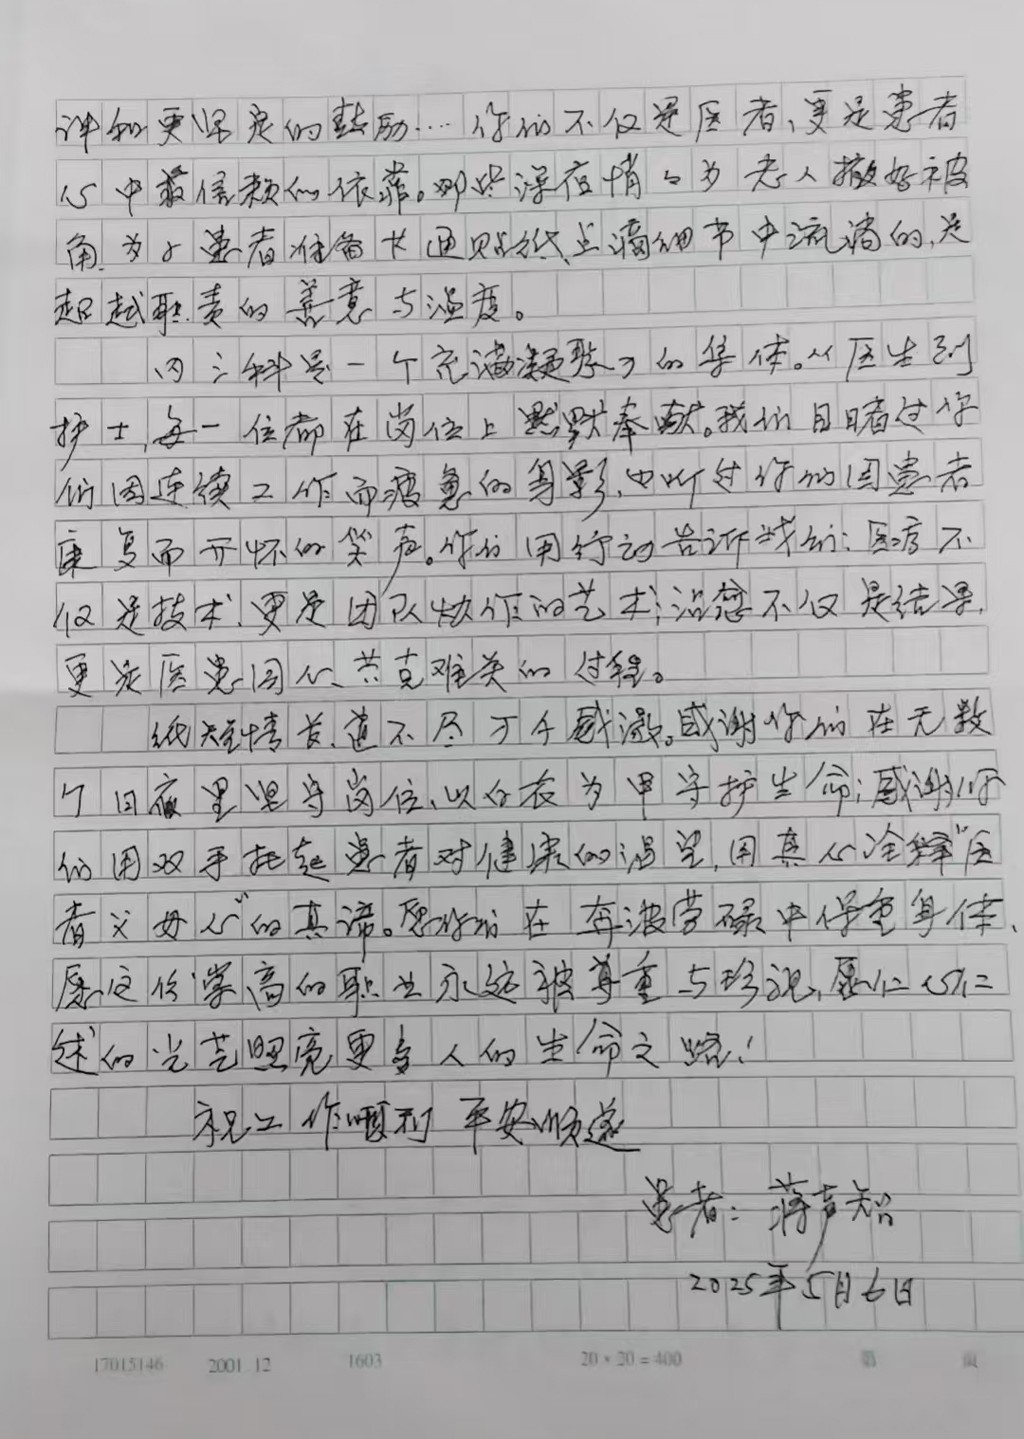 和更坚定的鼓励……你们不仅是医者、更是患者
心中最信赖的依靠。那些深夜悄々为老人掖好被
角、为患者准备卡通贴纸、点滴细节中流淌的、是
起越职责的善意与温度。
内三科是一个充满凝聚力的集体。从医生到
护士,每一位都在岗位上默默奉献。我们目睹过你
们因连续工作而疲惫的身影、也听过你们因患者
康复而开怀的笑声。你们用行动告诉我们:医疗不
仅是技术、更是团队协作的艺术;治愈不仅是结果、
更是医患同心、共克难关的过程。
纸短情长、道不尽万千感激。感谢你们在无数
个日夜里坚守岗位、以白衣为甲守护生命;感谢你
们用双手托起患者对健康的渴望,用真心诠释"医
者父母心"的真谛。愿你们在奔波劳碌中保重身体、
愿这份崇高的职业永远被尊重与珍视、愿仁心仁
术的光芒照亮更多人的生命之路!
祝工作顺利 平安顺遂
患者:蒋声知
2025年5月6日
17015146 2001.12 1603 20×20=400 第 页